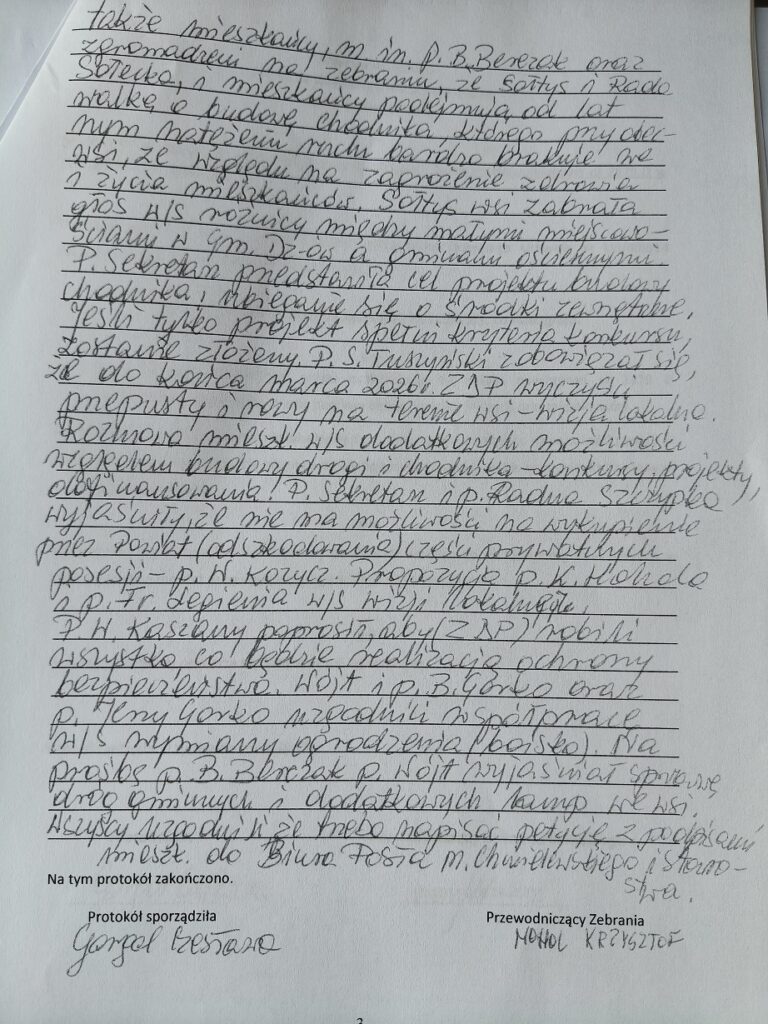 także mieszkańcy, m in. p. B. Berezak oraz
zgromadzeni na zebraniu, że Sołtys i Rada
Sołecka, i mieszkańcy podejmują od lat
walkę o budowę chodnika, którego przy obec-
nym natężeniu ruchu bardzo brakuje we
wsi, ze względu na zagrożenie zdrowia
i życia mieszkańców. Sołtys wsi zabrała
głos w/s różnicy między małymi miejscowo-
ściami w gm. Dz-ów a gminami ościennymi.
P. Sekretarz przedstawiła cel projektu budowy
chodnika, ubieganie się o środki zewnętrzne.
Jeśli tylko projekt spełni kryteria konkursu,
zostanie złożony. P. S. Tuszyński zobowiązał się,
że do końca marca 2026r. ZDP wyczyści
przepusty i rowy na terenie wsi - wizja lokalna.
Rozmowa mieszk. w/s dodatkowych możliwości
względem budowy drogi i chodnika - konkursy, projekty,
dofinansowania. P. Sekretarz i p. Radna Szczypka
wyjaśniły, że nie ma możliwości na wykupienie
przez Powiat (odszkodowania) części prywatnych
posesji - p. W. Korycz. Propozycja p. K.
i p. Fr. Legienia w/s wizji lokalnej.
P. W. Kaszany poprosił, aby (ZDP) robili
wszystko co będzie realizacją ochrony
bezpieczeństwa. Wójt i p. B. Gorko oraz
p. Jerzy Gorko uzgodnili współpracę
w/s wymiany ogrodzenia (boisko). Na
prośbę p. B. Berezak p. Wójt wyjaśniał sprawę
dróg gminnych i dodatkowych lamp we wsi.
Wszyscy uzgodnili że trzeba napisać petycję z podpisami
mieszk. do Biura Posła M. Chmielewskiego i Staro-
stwa.
Na tym protokół zakończono.
Protokół sporządziła
Przewodniczący Zebrania
Gargol Czesława
MOHOL KRZYSZTOF
3